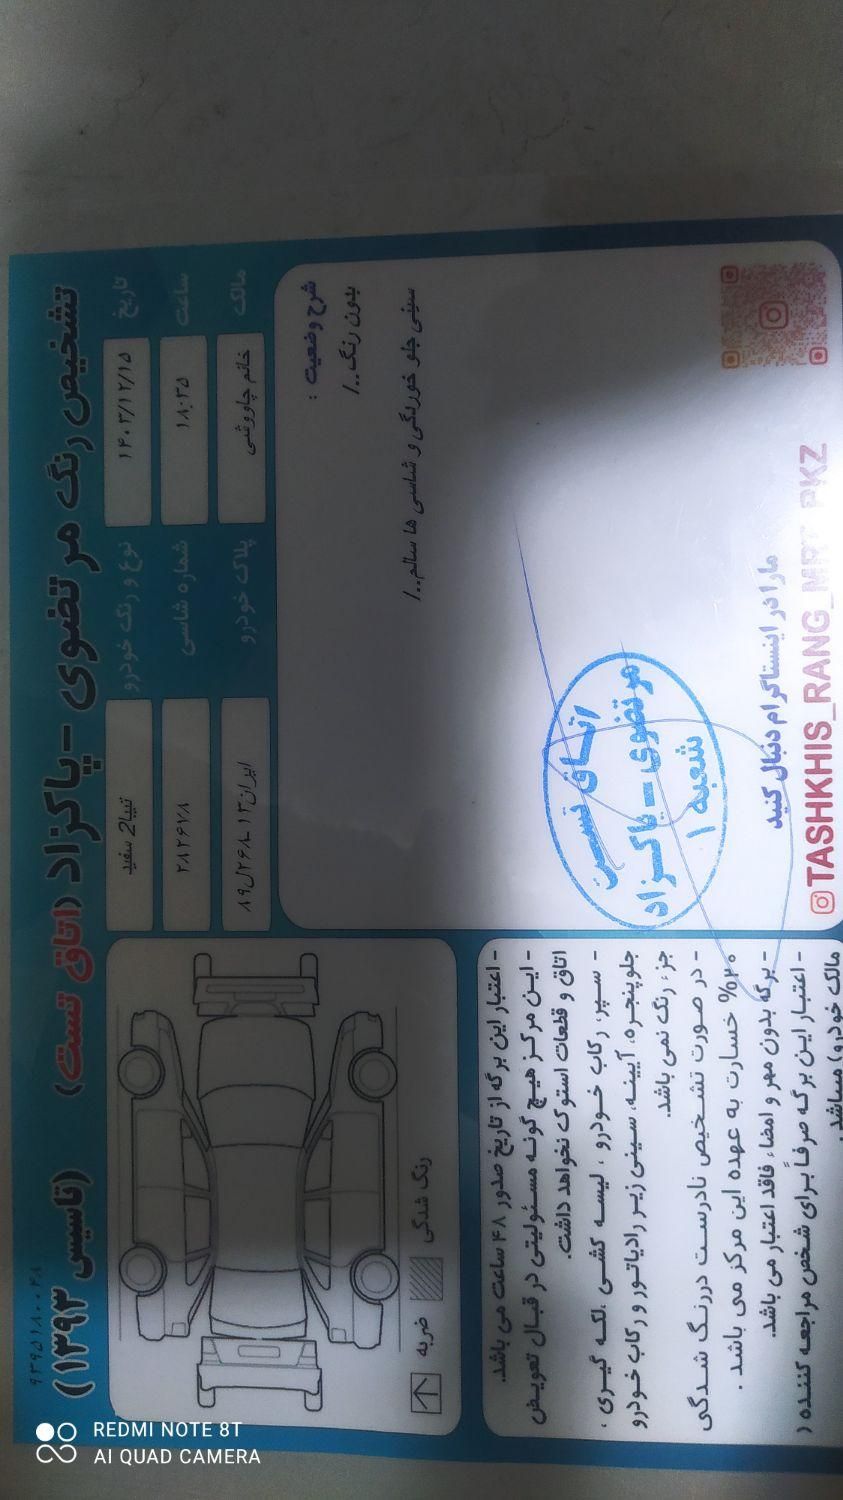 تشخیص رنگ مرتضوی - پاکزاد (اتاق تست) (تاسیس ۱۳۹۳)
تاریخ ۱۴۰۳/۱۲/۱۵ نوع و رنگ خودرو تیبا2 سفید
ساعت ۱۸:۳۵ شماره شاسی
مالک خانم چاووشی پلاک خودرو
شرح وضعیت :
بدون رنگ../
سینی جلو خوردگی و شاسی ها سالم../
اتاق تست
مرتضوی - پاکزاد
شعبه ۱
ما را در اینستاگرام دنبال کنید
TASHKHIS_RANG_MRT_PKZ
ضربه
رنگ شدگی
- اعتبار این برگه از تاریخ صدور ۴۸ ساعت می باشد.
- این مرکز هیچ گونه مسئولیتی در قبال تعویض
اتاق و قطعات استوک نخواهد داشت.
- سپر، رکاب خودرو ، لیسه کشی ،لکه گیری ،
جلوپنجره، آیینه، سینی زیر رادیاتور و رکاب خودرو
جزء رنگ نمی باشد.
- در صورت تشخیص نادرست در رنگ شدگی
۲۰% خسارت به عهده این مرکز می باشد .
- برگه بدون مهر و امضاء فاقد اعتبار می باشد.
- اعتبار این برگه صرفاً برای شخص مراجعه کننده (
مالک خودرو) میباشد.
REDMI NOTE 8T
AI QUAD CAMERA